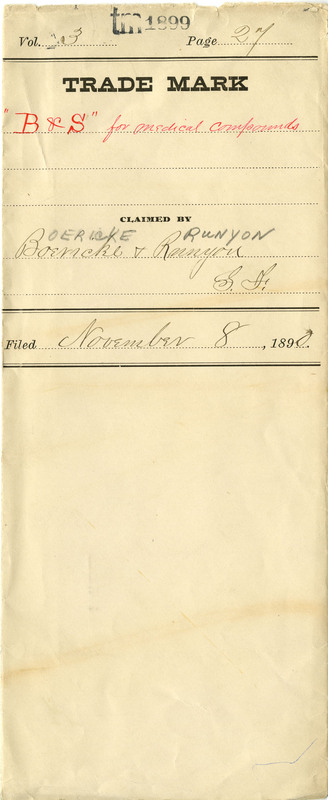 tm 1899
Vol. 3 Page 27
TRADE MARK
"B & S" for medical compounds
CLAIMED BY
OERICKE RUNYON
Boericke & Runyon
S. F.
Filed November 8, 189